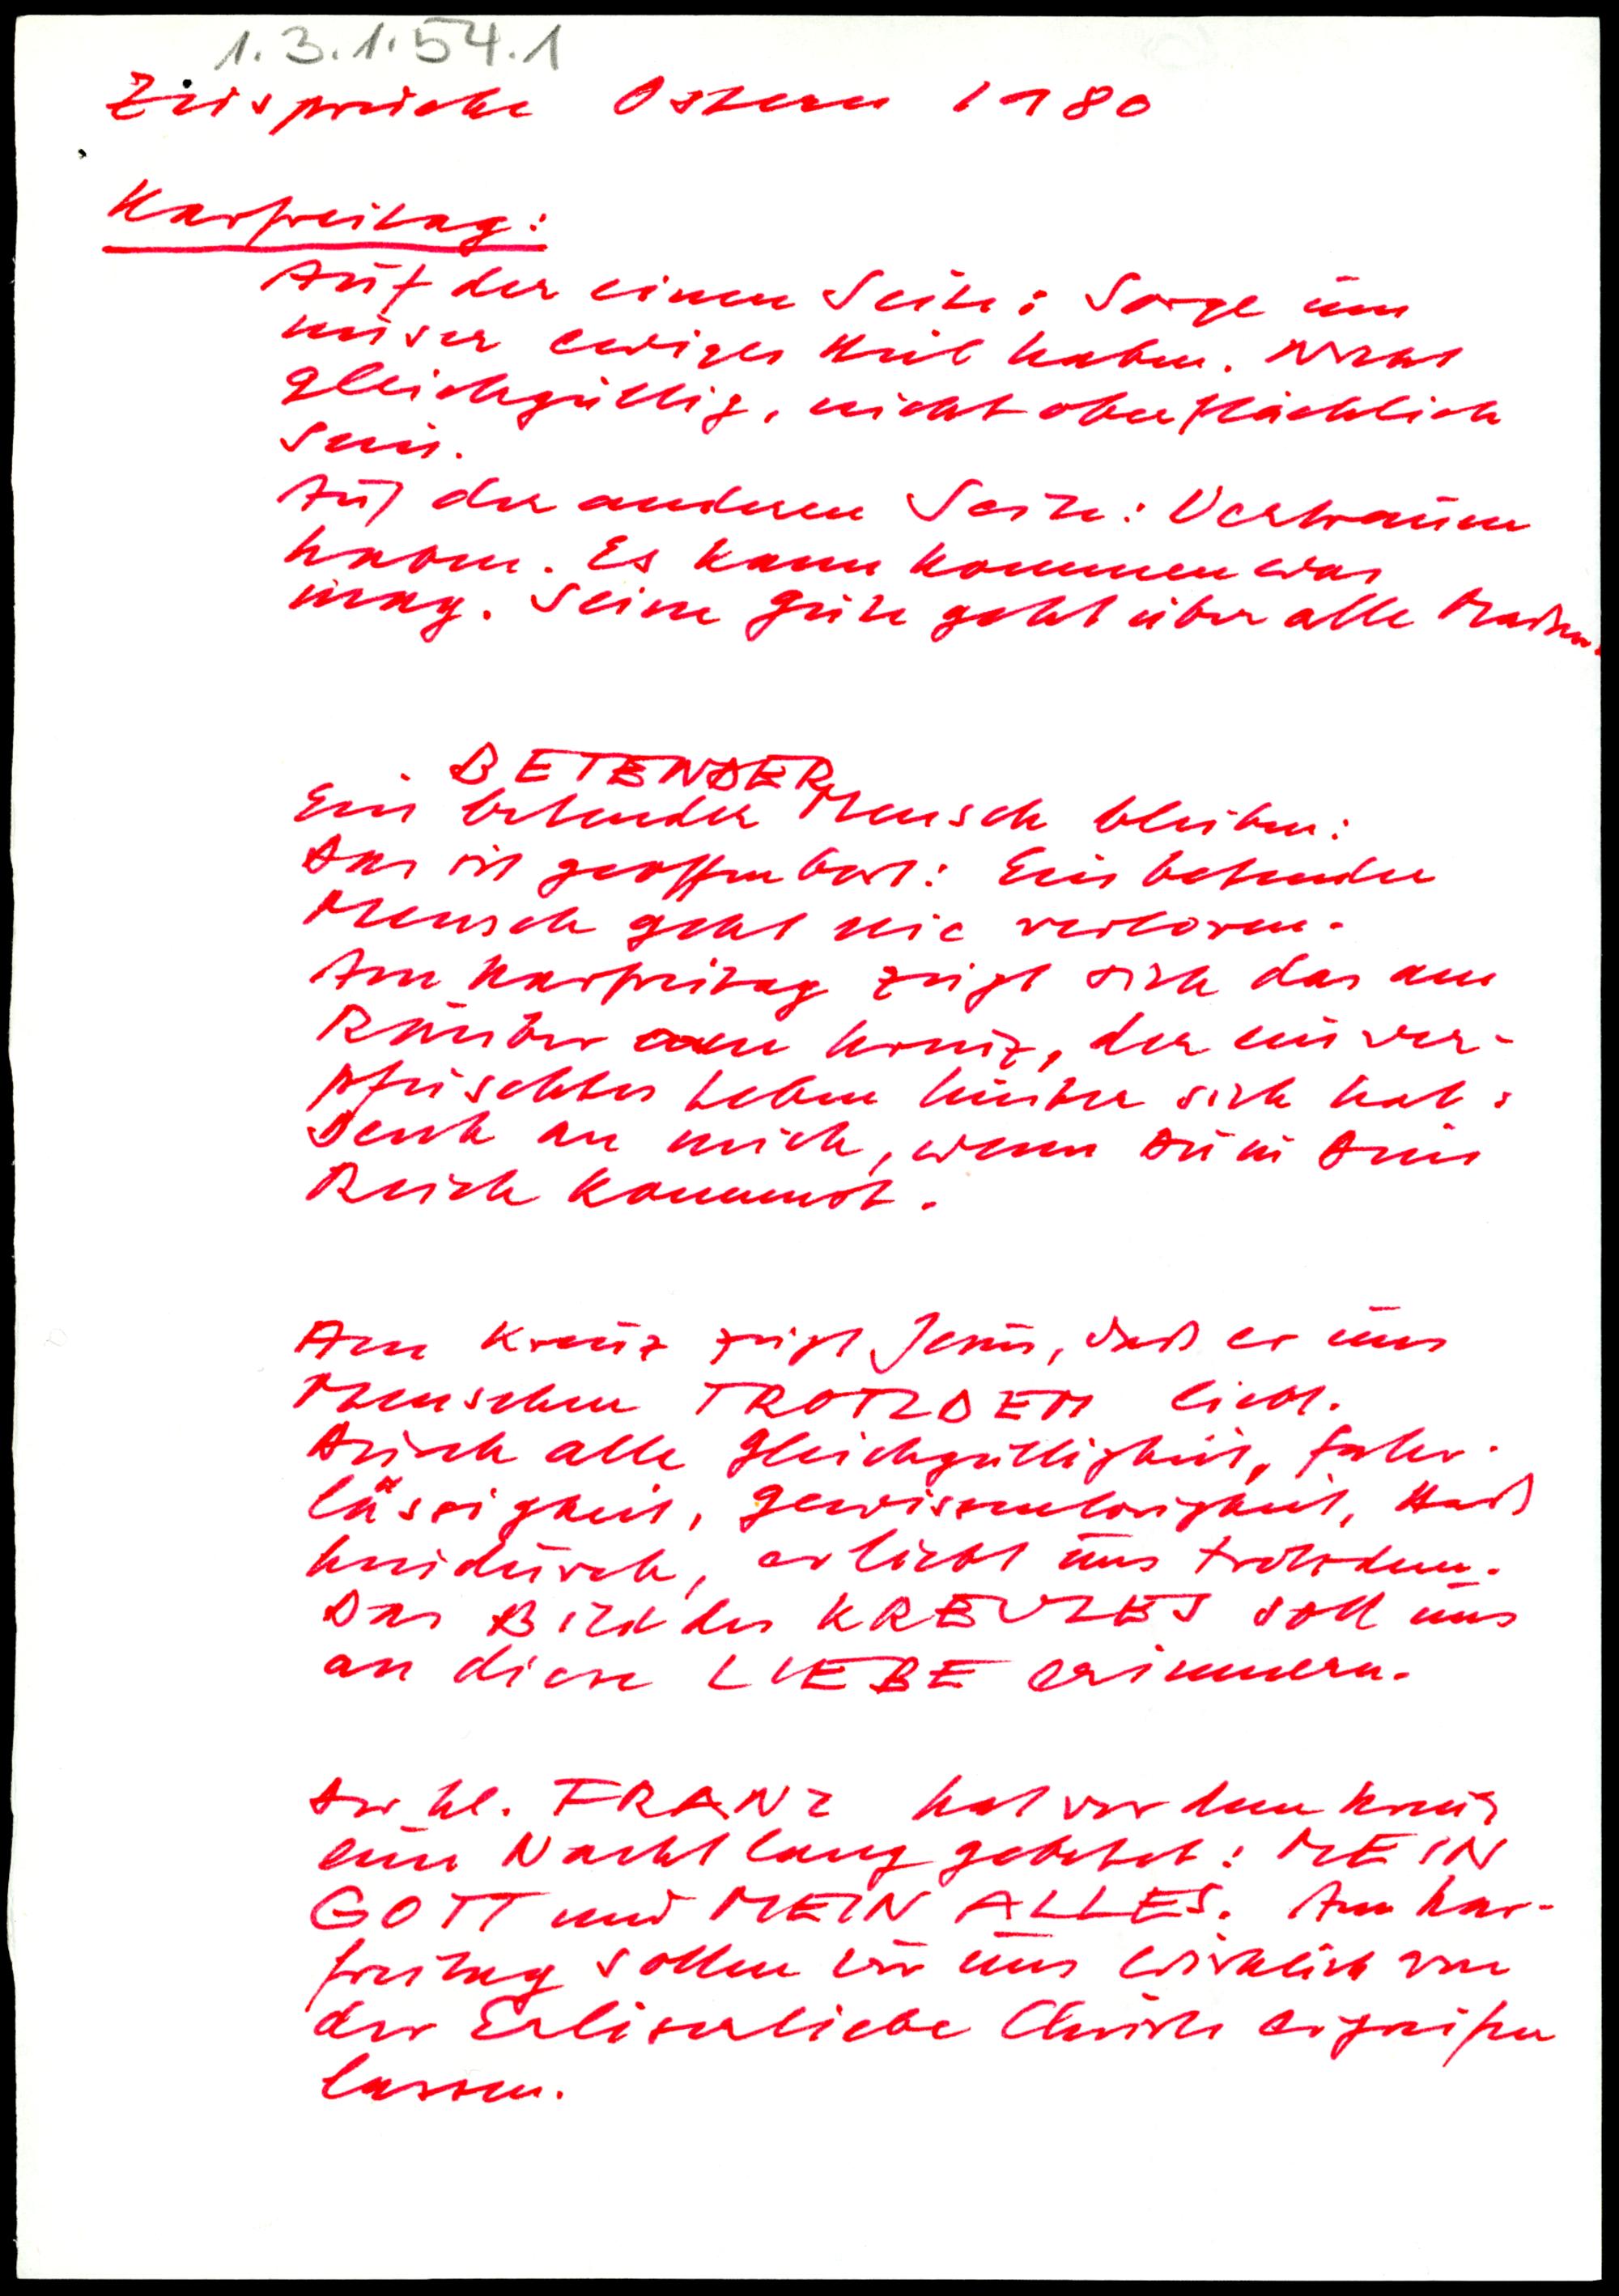 1.3.1.54.1
Zusprüche Ostern 1980
Karfreitag:
Auf der einen Seite: Sorge um
unser ewiges Heil haben. Nicht
gleichgültig, nicht oberflächlich
sein.
Auf der anderen Seite: Vertrauen
haben. Es kann kommen was
mag. Seine Güte geht über alle Maßen.
BETENDER
Ein betender Mensch bleiben:
Das ist geoffenbart: Ein betender
Mensch geht nie verloren.
Am Karfreitag zeigt sich das am
Räuber am Kreuz, der ein ver-
pfuschtes Leben hinter sich hat:
Denk an mich, wenn Du in Dein
Reich kommst.
Am Kreuz zeigt Jesus, daß er uns
Menschen TROTZDEM liebt.
Durch alle Gleichgültigkeit, Fahr-
lässigkeit, Gewissenlosigkeit, Haß
hindurch, er liebt uns trotzdem.
Das Bild des KREUZES soll uns
an diese LIEBE erinnern.
Der hl. FRANZ hat vor dem Kreuz
eine Nacht lang gebetet: MEIN
GOTT und MEIN ALLES. Am Kar-
freitag sollen wir uns wirklich von
der Erlöserliebe Christi ergreifen
lassen.